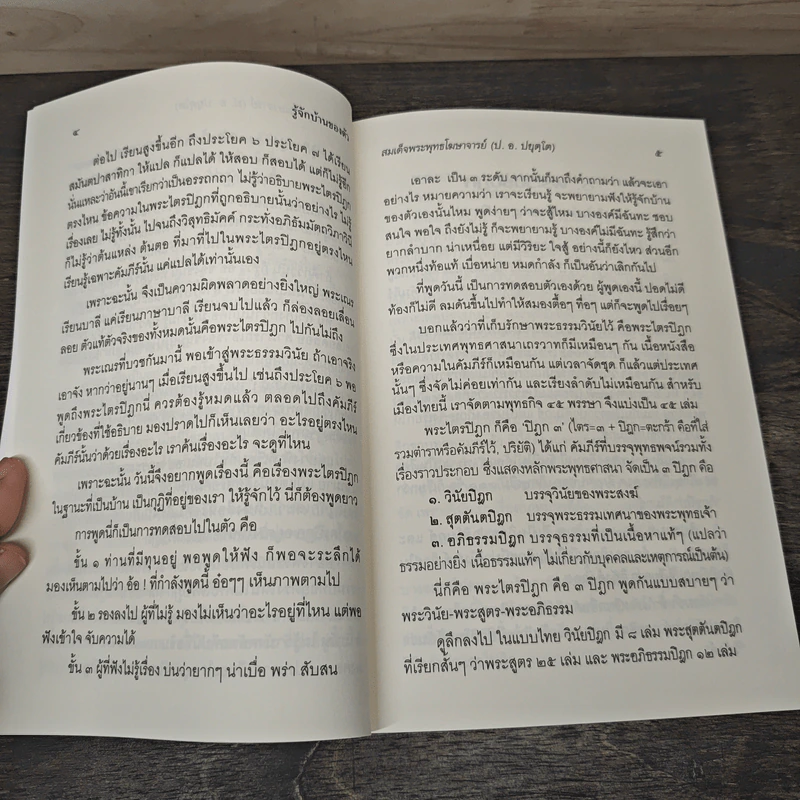 ๔
รู้จักบ้านของตัว
ต่อไป เรียนสูงขึ้นอีก ถึงประโยค ๖ ประโยค ๗ ได้เรียน
สมันตปาสาทิกา ให้แปล ก็แปลได้ ให้สอบ ก็สอบได้ แต่ก็ไม่รู้อีก
นั่นแหละว่าอันนี้เขาเรียกว่าเป็นอรรถกถา ไม่รู้ว่าอธิบายพระไตรปิฎก
ตรงไหน ข้อความในพระไตรปิฎกที่ถูกอธิบายนั้นว่าอย่างไร ไม่รู้
เรื่องเลย ไม่รู้ทั้งนั้น ไปจนถึงวิสุทธิมัคค์ กระทั่งอภิธัมมัตถวิภาวินี
ก็ไม่รู้ว่าต้นแหล่ง ต้นตอ ที่มาที่ไปในพระไตรปิฎกอยู่ตรงไหน
เรียนรู้เฉพาะคัมภีร์นั้น แค่แปลได้เท่านั้นเอง
เพราะฉะนั้น จึงเป็นความผิดพลาดอย่างยิ่งใหญ่ พระเณร
เรียนบาลี แค่เรียนภาษาบาลี เรียนจบไปแล้ว ก็ล่องลอยเลื่อน
ลอย ตัวแท้ตัวจริงของทั้งหมดนั้นคือพระไตรปิฎก ไปกันไม่ถึง
พระเณรที่บวชกันมานี้ พอเข้าสู่พระธรรมวินัย ถ้าเอาจริง
เอาจัง หากว่าอยู่นานๆ เมื่อเรียนสูงขึ้นไป เช่นถึงประโยค ๖ พอ
พูดถึงพระไตรปิฎกนี่ ควรต้องรู้หมดแล้ว ตลอดไปถึงคัมภีร์
เกี่ยวข้องที่ใช้อธิบาย มองปราดไปก็เห็นเลยว่า อะไรอยู่ตรงไหน
คัมภีร์นั้นว่าด้วยเรื่องอะไร เราค้นเรื่องอะไร จะดูที่ไหน
เพราะฉะนั้น วันนี้จึงอยากพูดเรื่องนี้ คือเรื่องพระไตรปิฎก
ในฐานะที่เป็นบ้าน เป็นกุฏิที่อยู่ของเรา ให้รู้จักไว้ นี่ก็ต้องพูดยาว
การพูดนี้ก็เป็นการทดสอบไปในตัว คือ
ขั้น ๑ ท่านที่มีทุนอยู่ พอพูดให้ฟัง ก็พอจะระลึกได้
มองเห็นตามไปว่า อ้อ ! ที่กำลังพูดนี้ อ๋อๆๆ เห็นภาพตามไป
ขั้น ๒ รองลงไป ผู้ที่ไม่รู้ มองไม่เห็นว่าอะไรอยู่ที่ไหน แต่พอ
ฟังเข้าใจ จับความได้
ขั้น ๓ ผู้ที่ฟังไม่รู้เรื่อง บ่นว่ายากๆ น่าเบื่อ พร่า สับสน
สมเด็จพระพุทธโฆษาจารย์ (ป. อ. ปยุตฺโต)
๕
เอาละ เป็น ๓ ระดับ จากนั้นก็มาถึงคำถามว่า แล้วจะเอา
อย่างไร หมายความว่า เราจะเรียนรู้ จะพยายามฟังให้รู้จักบ้าน
ของตัวเองนั้นไหม พูดง่ายๆ ว่าจะสู้ไหม บางองค์มีฉันทะ ชอบ
สนใจ พอใจ ถึงยังไม่รู้ ก็จะพยายามรู้ บางองค์ไม่มีฉันทะ รู้สึกว่า
ยากลำบาก น่าเหนื่อย แต่มีวิริยะ ใจสู้ อย่างนี้ก็ยังไหว ส่วนอีก
พวกหนึ่งท้อแท้ เบื่อหน่าย หมดกำลัง ก็เป็นอันว่าเลิกกันไป
ที่พูดวันนี้ เป็นการทดสอบตัวเองด้วย ผู้พูดเองนี้ ปอดไม่ดี
ท้องก็ไม่ดี ลมดันขึ้นไปทำให้สมองตื้อๆ ทื่อๆ แต่ก็จะพูดไปเรื่อยๆ
บอกแล้วว่าที่เก็บรักษาพระธรรมวินัยไว้ คือพระไตรปิฎก
ซึ่งในประเทศพุทธศาสนาเถรวาทก็มีเหมือนๆ กัน เนื้อหนังสือ
หรือความในคัมภีร์ก็เหมือนกัน แต่เวลาจัดชุด ก็แล้วแต่ประเทศ
นั้นๆ ซึ่งจัดไม่ค่อยเท่ากัน และเรียงลำดับไม่เหมือนกัน สำหรับ
เมืองไทยนี้ เราจัดตามพุทธกิจ ๔๕ พรรษา จึงแบ่งเป็น ๔๕ เล่ม
พระไตรปิฎก ก็คือ 'ปิฎก ๓' (ไตร=๓ + ปิฎก=ตะกร้า คือที่ใส่
รวมตำราหรือคัมภีร์ไว้, ปริยัติ) ได้แก่ คัมภีร์ที่บรรจุพุทธพจน์รวมทั้ง
เรื่องราวประกอบ ซึ่งแสดงหลักพระพุทธศาสนา จัดเป็น ๓ ปิฎก คือ
๑. วินัยปิฎก บรรจุวินัยของพระสงฆ์
๒. สุตตันตปิฎก บรรจุพระธรรมเทศนาของพระพุทธเจ้า
๓. อภิธรรมปิฎก บรรจุธรรมที่เป็นเนื้อหาแท้ๆ (แปลว่า
ธรรมอย่างยิ่ง เนื้อธรรมแท้ๆ ไม่เกี่ยวกับบุคคลและเหตุการณ์เป็นต้น)
นี่ก็คือ พระไตรปิฎก คือ ๓ ปิฎก พูดกันแบบสบายๆ ว่า
พระวินัย-พระสูตร-พระอภิธรรม
ดูลึกลงไป ในแบบไทย วินัยปิฎก มี ๘ เล่ม พระสุตตันตปิฎก
ที่เรียกสั้นๆ ว่าพระสูตร ๒๕ เล่ม และ พระอภิธรรมปิฎก ๑๒ เล่ม